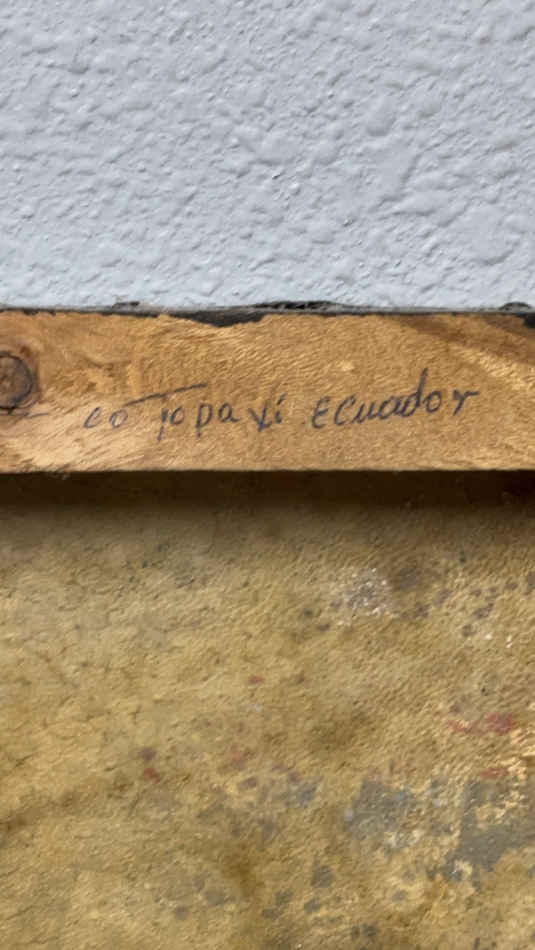 coTopaxi Ecuador